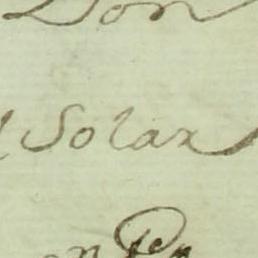 Don
l Solar